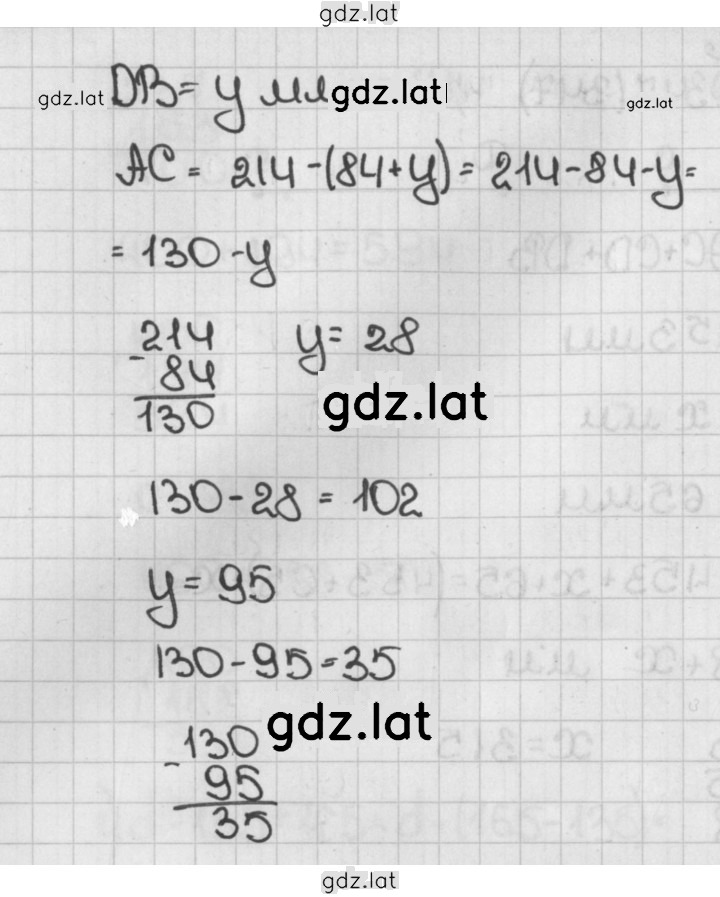 gdz.lat
gdz.lat DB = y мм gdz.lat gdz.lat
AC = 214 - (84 + y) = 214 - 84 - y =
= 130 - y
214 y = 28
- 84
130 gdz.lat
130 - 28 = 102
y = 95
130 - 95 = 35
gdz.lat
- 130
95
35
gdz.lat